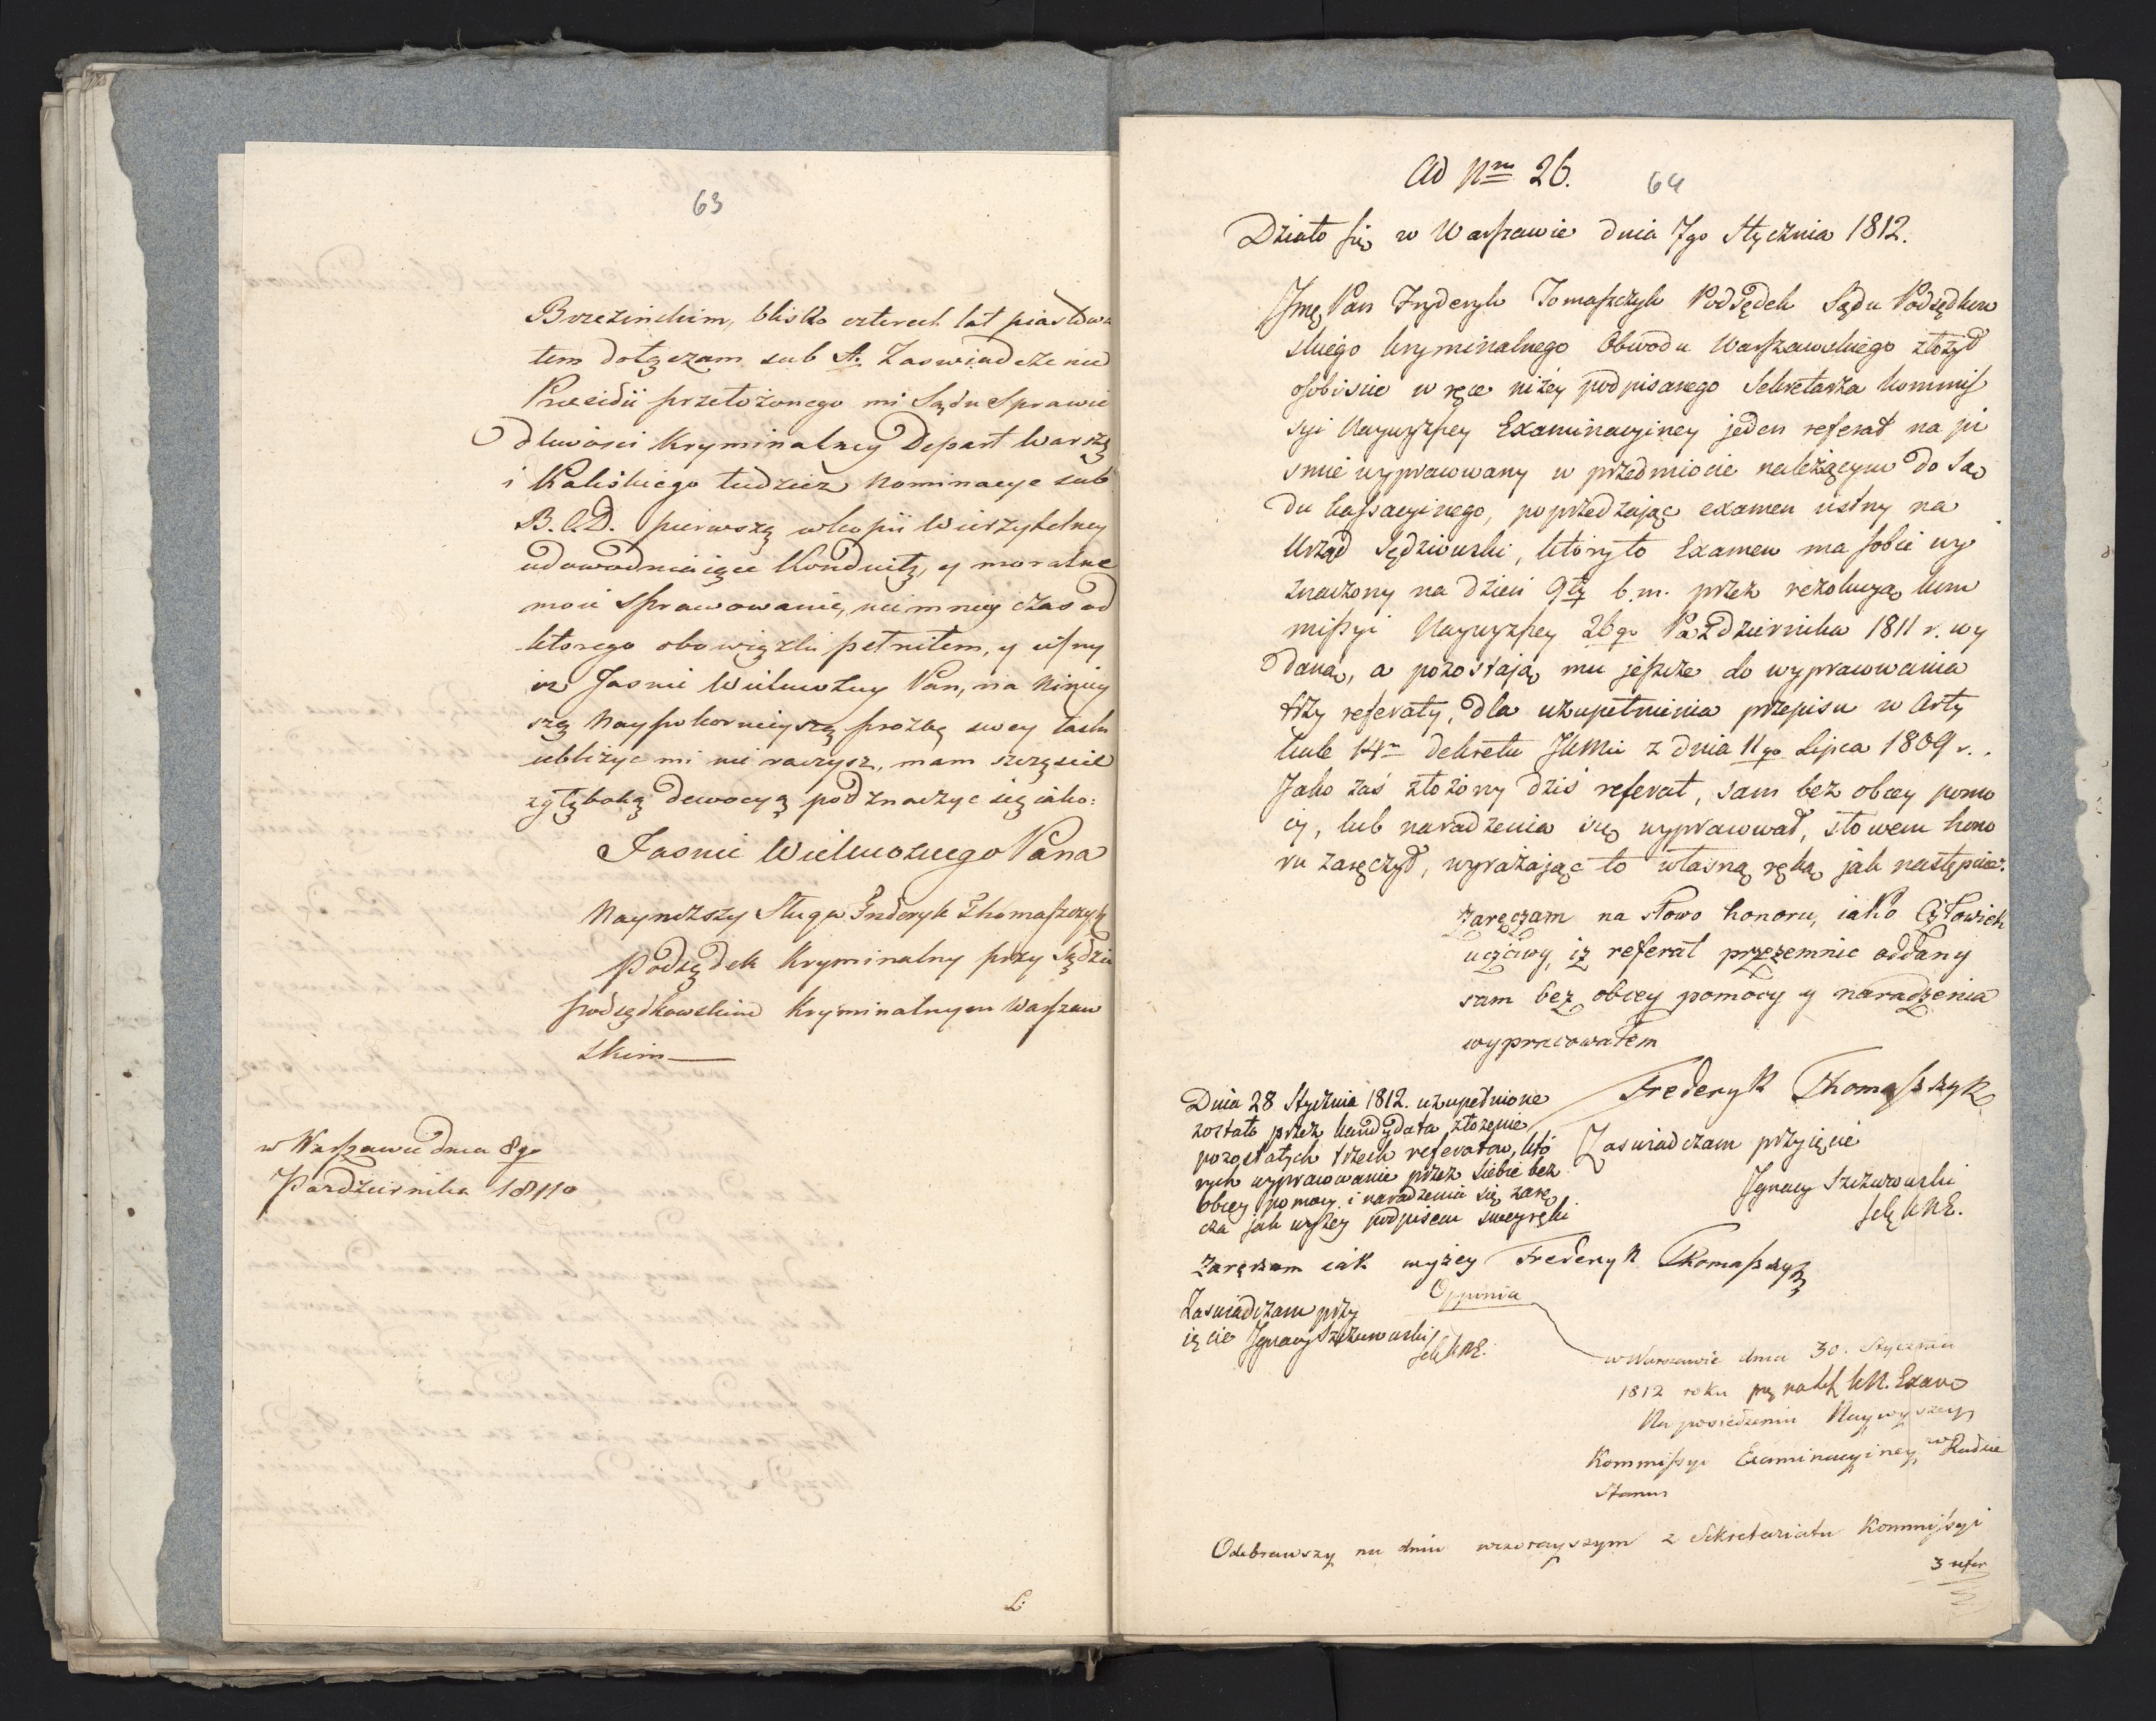 63
Brzezinskim, blisko czterech lat piastowa
łem dołączam sub A. Zaswiadczenie
Prezidii przełożonego mi Sądu Sprawie
dliwości Kryminalney Depart Warszą
i Kaliskiego tudzież Nominacye sub
B. C. D. pierwszą w kopii Wierzytelney
udowodniaiące Konduitę, y moralne
moie sprawowanie, niemniey czas od
ktorego obowiązki pełniłem, y ufny
iż Jasnie Wielmożny Pan, na Niniey
szą Naypokornieyszą prozbę swey łaski
ubliżyc mi nie raczysz, mam szczęscie
z głęboką dewocyą podznaczyc się iako:
Jasnie Wielmożnego Pana
Nayniższy Sługa Fryderyk Thomaszczyk
Podsędek Kryminalny przy Sądzie
podsędkowskim Kryminalnym Warszaw
skim
w Warszawie dnia 8go
Pazdziernika 1811o
L:
Ad Nm 26.
64
Działo się w Warszawie dnia 7go Stycznia 1812.
Jmę Pan Fryderyk Tomaszczyk Podsędek Sądu Podsędkow
skiego kryminalnego Obwodu Warszawskiego złożył
osobiscie w ręce niżey podpisanego Sekretarza kommis
syi Naywyższey Examinacyiney jeden referat na pi
smie wypracowany w przedmiocie należącym do Są
du kassacyinego, poprzedzając examen ustny na
Urząd Sędziowski, który to Examen ma sobie wy
znaczony na dzień 9ty b.m. przez rezolucyą kom
missyi Naywyższey 26go Października 1811 r. wy
daną, a pozostają mu jeszcze do wypracowania
trzy referaty, dla uzupełnienia przepisu w Arty
kule 14m dekretu JKMci z dnia 11go Lipca 1809 r.
Jako zaś złożony dziś referat, sam bez obcey pomo
cy, lub naradzenia się wypracował, słowem hono
ru zaręczył, wyrażając to własną ręką jak następuie:
Zaręczam na słowo honoru, iako Człowiek
uczciwy, iż referat przezemnie oddany
sam bez obcey pomocy y naradzenia
wypracowałem
Frederyk Thomaszczyk
Dnia 28 Stycznia 1812. uzupełnione
zostało przez kandydata złożenie
pozostałych trzech referatow, któ
rych wypracowanie przez siebie bez
obcey pomocy i naradzenia się zarę
cza jak wyżey podpisem swey ręki
Zaswiadczam przyięcie
Ignacy Szczurowski
Sek. K.N.E.
Zaręczam iak wyżey Frederyk Thomaszczyk
Zaswiadczam przy
ięcie Ignacy Szczurowski
Sek K.N.E.
Oppinia
w Warszawie dnia 30. Stycznia
1812 roku K.N. Exam
Na posiedzeniu Naywyższey
Kommissyi Examinacyiney w Radzie
Stanu
Odebrawszy na dniu wczorayszym z Sekretariatu Kommissyi
3 refer